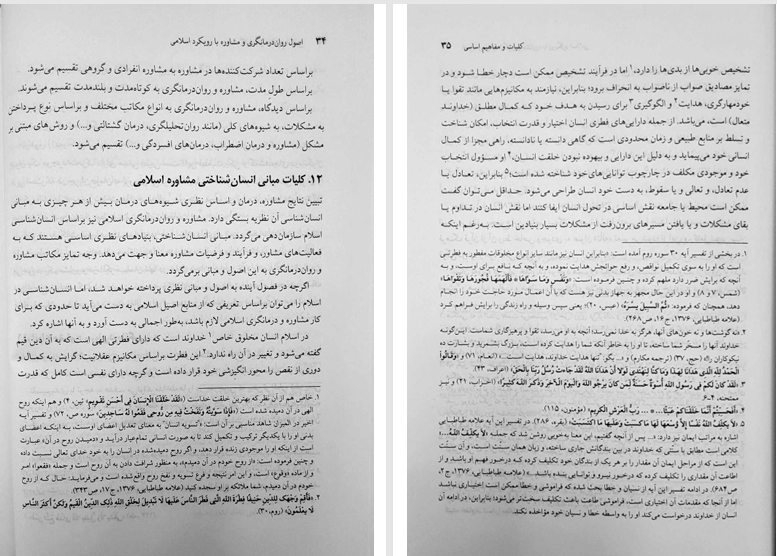 ۳۴ اصول روان‌درمانگری و مشاوره با رویکرد اسلامی
براساس تعداد شرکت‌کننده‌ها در مشاوره به مشاوره انفرادی و گروهی تقسیم می‌شود.
براساس طول مدت، مشاوره و روان‌درمانگری به کوتاه‌مدت و بلندمدت تقسیم می‌شوند.
براساس دیدگاه، مشاوره و روان‌درمانگری به انواع مکاتب مختلف و براساس نوع پرداختن
به مشکلات، به شیوه‌های کلی (مانند روان‌تحلیلگری، درمان گشتالتی و...) و روش‌های مبتنی بر
مشکل (مشاوره و درمان اضطراب، درمان‌های افسردگی و...) تقسیم می‌شود.
۱۲. کلیات مبانی انسان‌شناختی مشاوره اسلامی
تبیین نتایج مشاوره، درمان و اساس نظری شیوه‌های درمان بیش از هر چیزی به مبانی
انسان‌شناسی آن نظریه بستگی دارد. مشاوره و روان‌درمانگری اسلامی نیز براساس انسان‌شناسی
اسلام سازمان‌دهی می‌گردد. مبانی انسان‌شناختی، بنیادهای نظری اساسی هستند که به
فعالیت‌های مشاور، و فرآیند و فرضیات مشاوره معنا و جهت می‌دهد. وجه تمایز مکاتب مشاوره
و روان‌درمانگری به این اصول و مبانی برمی‌گردد.
اگرچه در فصول آینده به اصول و مبانی نظری پرداخته خواهد شد، اما انسان‌شناسی در
اسلام را می‌توان براساس تعریفی که از منابع اصیل اسلامی به دست می‌آید تا حدودی که برای
کار مشاوره و درمانگری اسلامی لازم باشد، به‌طور اجمالی به دست آورد و به آنها اشاره کرد.
در اسلام انسان مخلوق خاص۱ خداوند است که دارای فطرتی الهی است که به آن دین قیم
گفته می‌شود و تغییر در آن راه ندارد.۲ این فطرت براساس مکانیزم عقلانیت؛ گرایش به کمال و
دوری از نقص را محور انگیزشی خود قرار داده است و گرچه دارای نفسی است کامل که قدرت
۱. خاص هم از آن نظر که بهترین خلقت خداست «لَقَدْ خَلَقْنَا الْإِنسَانَ فِي أَحْسَنِ تَقْوِيمٍ» (تین، ۴) و هم اینکه روح
الهی در آن دمیده شده است «فَإِذَا سَوَّيْتُهُ وَنَفَخْتُ فِيهِ مِن رُّوحِي فَقَعُوا لَهُ سَاجِدِينَ» (سوره ص، ۷۲) و تفسیر آیه
اخیر در المیزان شاهد مناسبی بر آن است: «تسویه انسان» به معنای تعدیل اعضای اوست، به اینکه اعضای
بدنی او را با یکدیگر ترکیب و تکمیل کند تا به صورت انسانی تمام‌عیار درآید و «دمیدن روح در آن» عبارت
است از اینکه او را موجودی زنده قرار دهد، و اگر روح دمیده‌شده در انسان را به خود خدای تعالی نسبت داده
و چنین فرموده است: «از روح خودم در آن دمیدم»، به منظور شرافت دادن به آن روح است و جمله «فقعوا» امر
و از ماده (وقوع) است، و این امر نتیجه و فرع تسویه و نفخ روح واقع شده است و می‌فرماید: حال که از روح
خودم در آن دمیدم، شما ملائکه بر او سجده کنید (علامه طباطبائی، ۱۳۷۶، ج ۱۷، ص ۳۴۳)
۲. «فَأَقِمْ وَجْهَكَ لِلدِّينِ حَنِيفًا فِطْرَةَ اللَّهِ الَّتِي فَطَرَ النَّاسَ عَلَيْهَا لَا تَبْدِيلَ لِخَلْقِ اللَّهِ ذَٰلِكَ الدِّينُ الْقَيِّمُ وَلَٰكِنَّ أَكْثَرَ النَّاسِ
لَا يَعْلَمُونَ» (روم، ۳۰).
کلیات و مفاهیم اساسی ۳۵
تشخیص خوبی‌ها از بدی‌ها را دارد،۱ اما در فرآیند تشخیص ممکن است دچار خطا شود و در
تمایز مصادیق صواب از ناصواب به انحراف برود؛ بنابراین، نیازمند به مکانیزم‌هایی مانند تقوا یا
خودمهارگری، هدایت۲ و الگوگیری۳ برای رسیدن به هدف خود که کمال مطلق (خداوند
متعال) است، می‌باشد. از جمله دارایی‌های فطری انسان اختیار و قدرت انتخاب، امکان شناخت
و تسلط بر منابع طبیعی و زمان محدودی است که گاهی دانسته یا نادانسته، راهی مجزا از کمال
انسانی خود می‌پیماید و به دلیل این دارایی و بیهوده نبودن خلقت انسان،۴ او مسؤول انتخاب
خود و موجودی مکلف در چارچوب توانایی‌های خود شناخته شده است؛۵ بنابراین، تعادل یا
عدم تعادل، و تعالی و یا سقوط، به دست خود انسان طراحی می‌شود. حداقل می‌توان گفت
ممکن است محیط یا جامعه نقش اساسی در تحول انسان ایفا کنند اما نقش انسان در تداوم یا
بقای مشکلات و یا یافتن مسیرهای برون‌رفت از مشکلات بسیار بنیادین است. به‌رغم اینکه
۱. در بخشی از تفسیر آیه ۳۰ سوره روم آمده است: بنابراین انسان نیز مانند سایر انواع مخلوقات مفطور به فطرتی
است که او را به سوی تکمیل نواقص، و رفع حوائجش هدایت نموده، و به آنچه که نافع برای اوست، و به
آنچه که برایش ضرر دارد ملهم کرده و چنین فرموده است: «وَنَفْسٍ وَمَا سَوَّاهَا * فَأَلْهَمَهَا فُجُورَهَا وَتَقْوَاهَا»
(شمس، ۷ و ۸) و او در این حال مجهز به جهاز بدنی نیز هست که با آن اعمال مورد حاجت خود را انجام
دهد، همچنان که فرموده: «ثُمَّ السَّبِيلَ يَسَّرَهُ» (عبس، ۲۰)؛ یعنی سپس وسیله و راه زندگی را برایش فراهم کرد
(علامه طباطبائی، ۱۳۷۶، ج ۱۶، ص ۲۶۸).
۲. «نه گوشت‌ها و نه خون‌های آنها، هرگز به خدا نمی‌رسد؛ آنچه به او می‌رسد، تقوا و پرهیزگاری شماست. این‌گونه
خداوند آنها را مسخر شما ساخته، تا او را به خاطر آنکه شما را هدایت کرده است، بزرگ بشمرید و بشارت ده
نیکوکاران را!» (حج، ۳۷) (ترجمه مکارم) و «... بگو: "تنها هدایت خداوند، هدایت است..."» (انعام، ۷۱) و «وَقَالُوا
الْحَمْدُ لِلَّهِ الَّذِي هَدَانَا لِهَٰذَا وَمَا كُنَّا لِنَهْتَدِيَ لَوْلَا أَنْ هَدَانَا اللَّهُ لَقَدْ جَاءَتْ رُسُلُ رَبِّنَا بِالْحَقِّ» (اعراف، ۴۳).
۳. «لَقَدْ كَانَ لَكُمْ فِي رَسُولِ اللَّهِ أُسْوَةٌ حَسَنَةٌ لِمَن كَانَ يَرْجُو اللَّهَ وَالْيَوْمَ الْآخِرَ وَذَكَرَ اللَّهَ كَثِيرًا» (احزاب، ۲۱) و نیز
ممتحنه، ۴-۶.
۴. «أَفَحَسِبْتُمْ أَنَّمَا خَلَقْنَاكُمْ عَبَثًا... * ... رَبُّ الْعَرْشِ الْكَرِيمِ» (مؤمنون، ۱۱۵).
۵. «لَا يُكَلِّفُ اللَّهُ نَفْسًا إِلَّا وُسْعَهَا لَهَا مَا كَسَبَتْ وَعَلَيْهَا مَا اكْتَسَبَتْ» (بقره، ۲۸۶). در تفسیر این آیه علامه طباطبایی
اشاره به مراتب ایمان نیز دارد: «... پس از آنچه گفتیم، این معنا به‌خوبی روشن شد که جمله «لَا يُكَلِّفُ اللَّهُ...»
کلامی است مطابق با سنتی که خداوند در بین بندگانش جاری ساخته، و زبان همان سنت است، و آن سنت
این است که از مراحل ایمان آن مقدار را بر هر یک از بندگان خود تکلیف کرده که درخور فهم او باشد و از
اطاعت آن مقداری را تکلیف کرده که درخور نیرو و توانایی بنده باشد...» (علامه طباطبائی، ۱۳۷۶، ج ۲،
ص ۶۸۴). در ادامه تفسیر این آیه از نسیان و خطا بحث شده که فراموشی و خطا ممکن است اختیاری نباشد
اما از آنجا که مقدمات آن اختیاری است، فراموشی طاعت باعث تکلیف سخت‌تر می‌شود؛ بنابراین، در ادامه آن
انسان از خداوند درخواست می‌کند او را به واسطه خطا و نسیان خود مؤاخذه نکند.